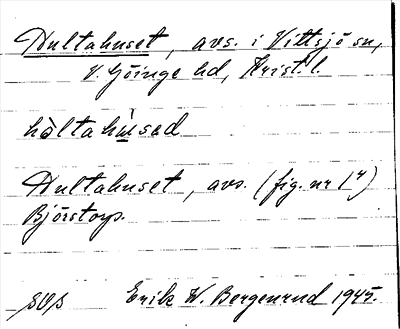 Hultahuset, avs. i Vittsjö sn,
V. Göinge hd, Krist. l.
hàltahúsad
Hultahuset, avs. (fig. nr 1⁴)
Björstorp.
Erik W. Bergenrud 1945.